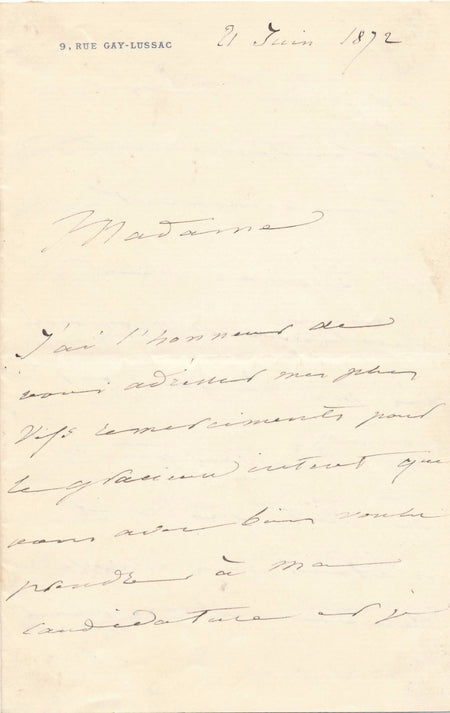 9, RUE GAY-LUSSAC
21 Juin 1872
Madame
J'ai l'honneur de
vous adresser mes plus
vifs remerciments pour
le gracieux intérêt que
vous avez bien voulu
prendre à ma
candidature et je